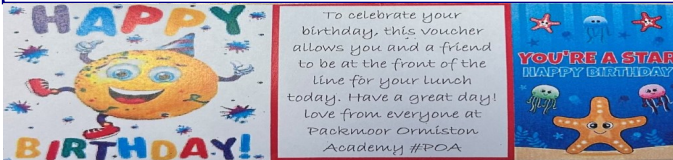 HAPPY
BIRTHDAY!
To celebrate your
birthday, this voucher
allows you and a friend
to be at the front of the
line for your lunch
today. Have a great day!
Love from everyone at
Packmoor Ormiston
Academy #POA
YOU'RE A STAR
HAPPY BIRTHDAY